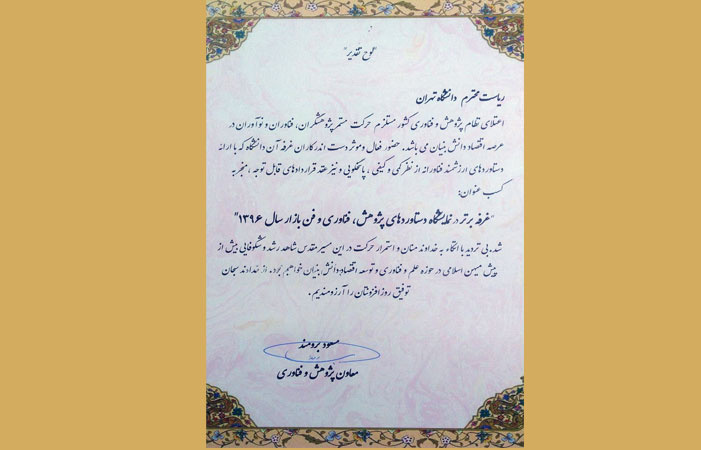 "لوح تقدیر"
ریاست محترم دانشگاه تهران
اعتلای نظام پژوهش و فناوری کشور مستلزم حرکت مستمر پژوهشگران، فناوران و نوآوران در
عرصه اقتصاد دانش بنیان می باشد. حضور فعال و موثر دست اندرکاران غرفه آن دانشگاه که با ارائه
دستاوردهای ارزشمند فناورانه از نظر کمی و کیفی ، پاسخگویی و نیز عقد قراردادهای قابل توجه ، منجر به
کسب عنوان:
"غرفه برتر در نمایشگاه دستاوردهای پژوهش، فناوری و فن بازار سال ۱۳۹۶"
شد. بی تردید با اتکاء به خداوند منان و استمرار حرکت در این مسیر مقدس شاهد رشد و شکوفایی بیش از
پیش میهن اسلامی در حوزه علم و فناوری و توسعه اقتصاد دانش بنیان خواهیم بود. از خداوند سبحان
توفیق روزافزونتان را آرزومندیم .
مسعود برومند
معاون پژوهش و فناوری